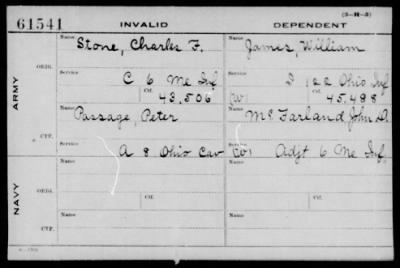 (3-H-3)
61541 INVALID DEPENDENT
Name Stone, Charles F. Name James, William
ARMY
ORIG.
Service C 6 Me Inf Service I 122 Ohio Inf
Ctf. 43,506 (W) Ctf. 45,488
Name Passage, Peter Name McFarland, John D.
CTF.
Service A 8 Ohio Cav Service (W) Adjt 6 Me Inf.
NAVY
ORIG.
Name Ctf. Name Ctf.
CTF.
Name Name